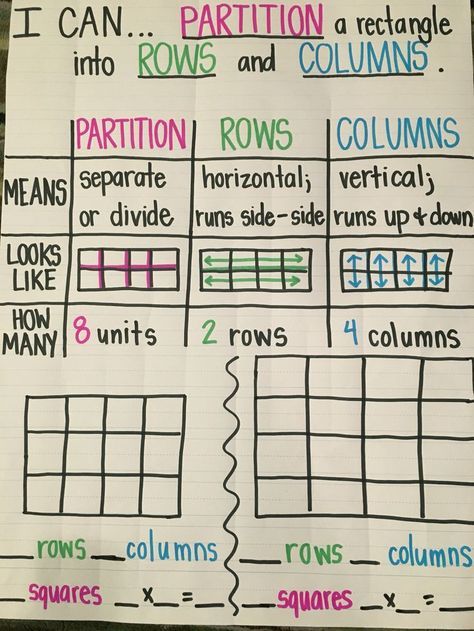 I CAN... PARTITION a rectangle
into ROWS and COLUMNS.
PARTITION ROWS COLUMNS
MEANS separate or divide horizontal; runs side-side vertical; runs up & down
LOOKS LIKE
HOW MANY 8 units 2 rows 4 columns
__ rows __ columns
__ squares __ x __ = __
__ rows __ columns
__ squares __ x __ = __